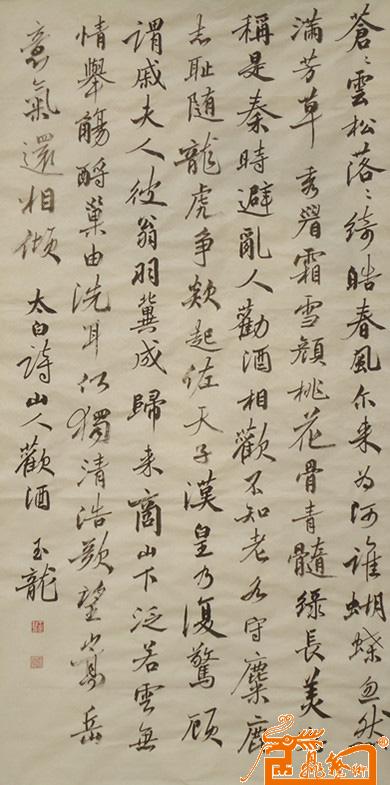 蒼〻雲松落〻綺皓春風尔来為阿誰蝴蝶忽然
滿芳草秀眉霜雪顔桃花骨青髓綠長美
稱是秦時避亂人勸酒相歡不知老各守麋鹿
志耻随龍虎争欻起佐天子漢皇乃復驚顧
謂戚夫人彼翁羽翼成歸来商山下泛若雲無
情舉觴酹巢由洗耳何獨清浩歌望嵩岳
意氣還相傾 太白詩山人歡酒 玉龍